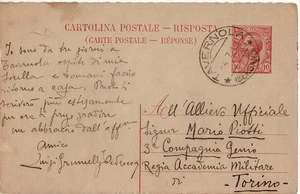 CARTOLINA POSTALE - RISPOSTA
(CARTE POSTALE - RÉPONSE)
TAVERNOLA
10
Io sono da tre giorni a
Tavernola ospite di mia
sorella e domani faccio
ritorno a casa. Presto ti
scriverò più estesamente
per ora ti prego gradire
un abbraccio dall'aff.mo
Amico
Luigi
All'Allievo Ufficiale
Signor Mario Piotti
3ª Compagnia Genio
Regia Accademia Militare
di
Torino